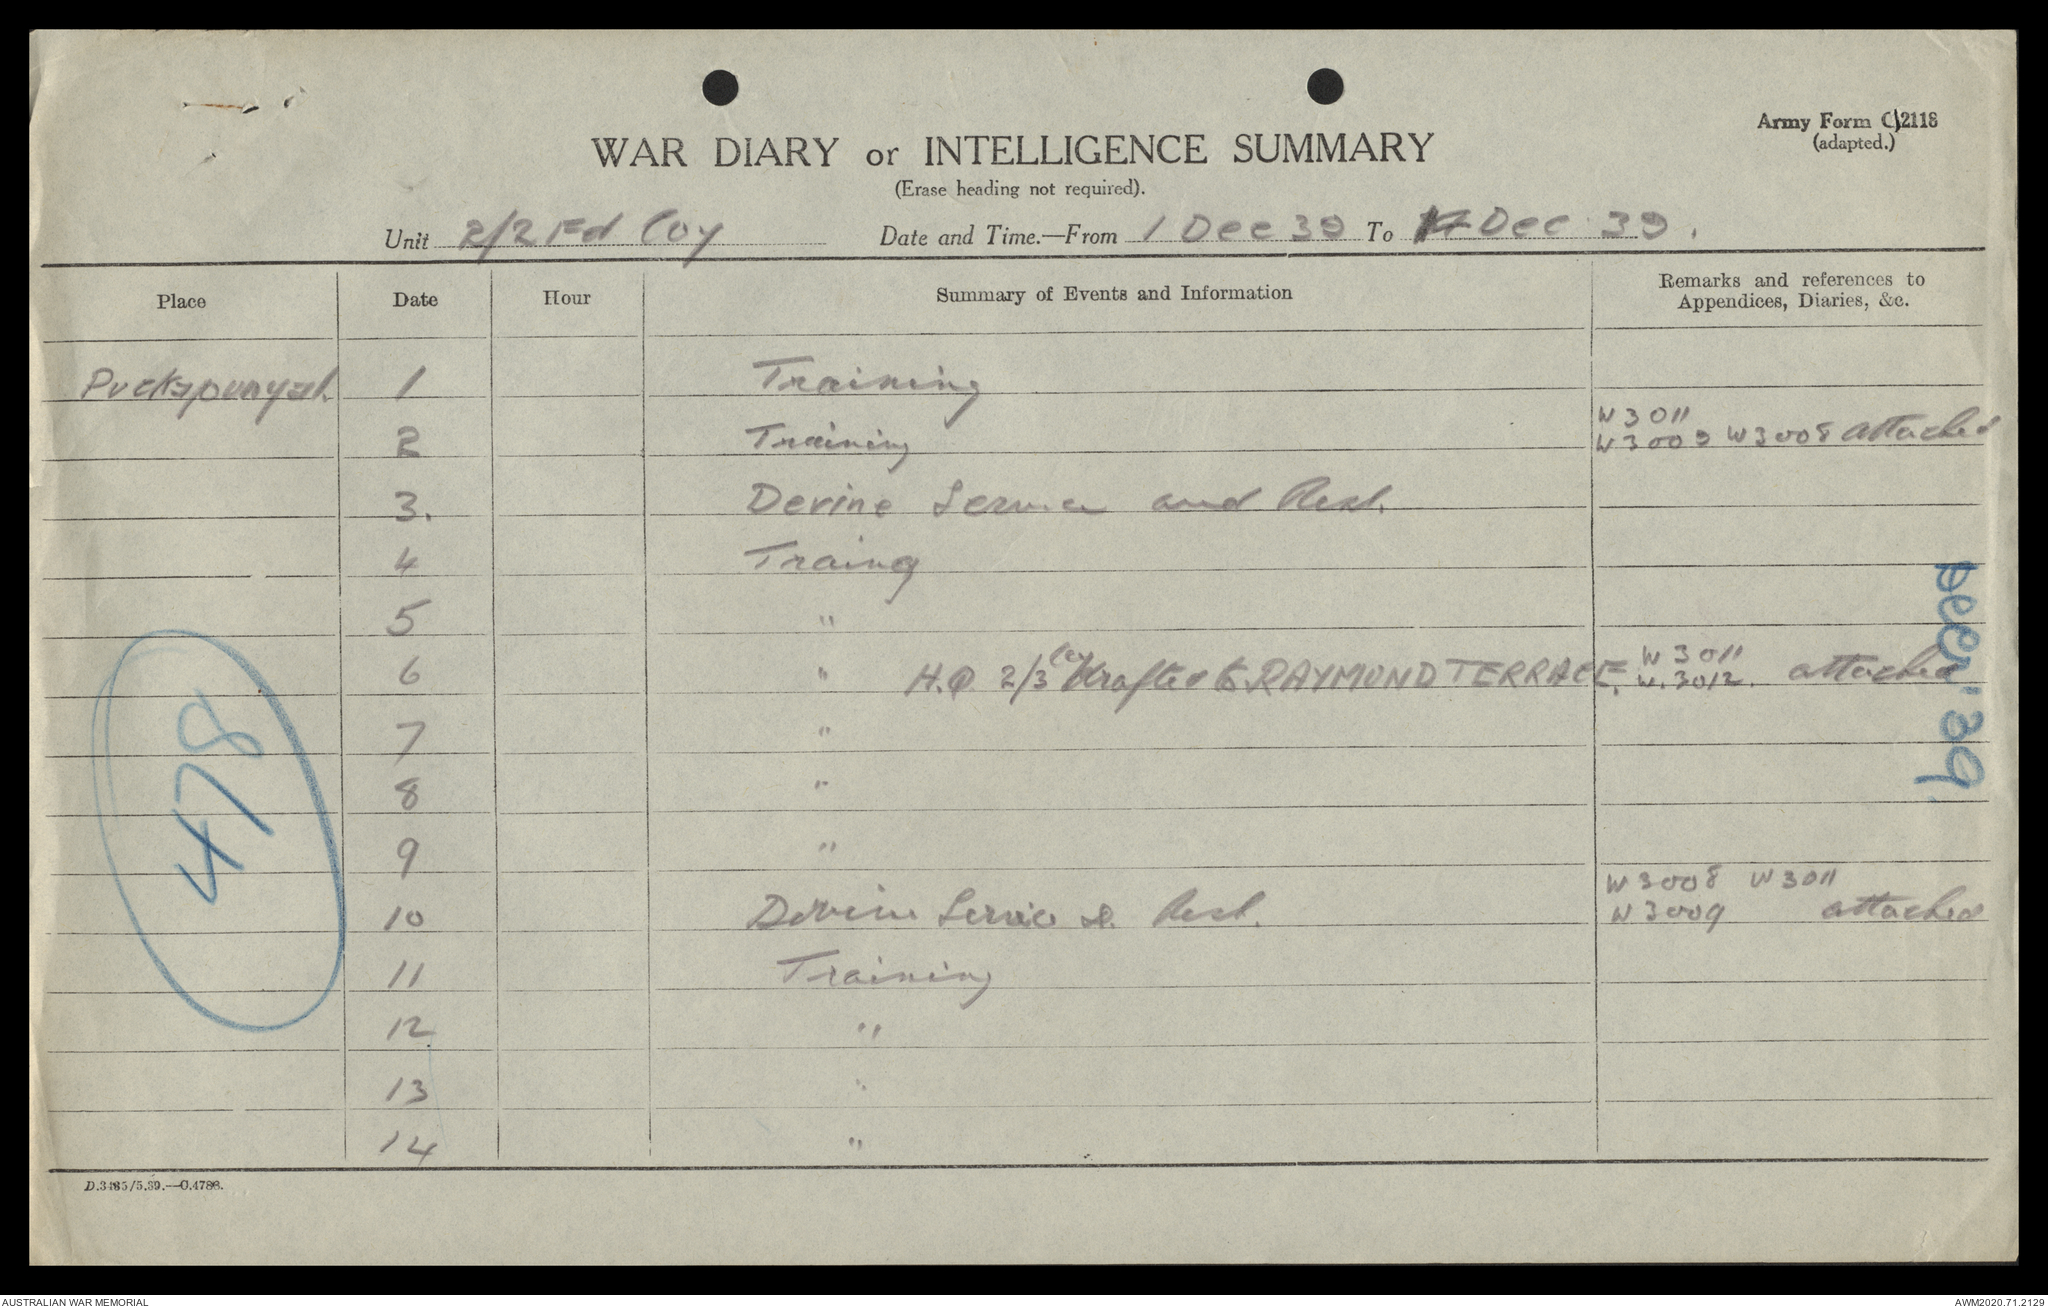 Army Form C.2118
(adapted.)
WAR DIARY or INTELLIGENCE SUMMARY
(Erase heading not required).
Unit 2/2 Fd Coy Date and Time.—From 1 Dec 39 To 14 Dec 39.
Place Date Hour Summary of Events and Information Remarks and references to
Appendices, Diaries, &c.
Puckapunyah 1 Training
W3011
2 Training W3009 W3008 attached
3. Devine Service and Rest.
4 Traing
5 "
Coy W3011
6 " H.Q. 2/3 Mrafted to RAYMOND TERRACE. W.3012. attached
7 "
8 "
9 "
W3008 W3011
10 Devine Service & Rest. W3009 attached
11 Training
12 "
13 "
14 "
Dec' 39.
478
D.3485/5.39.—C.4788.
AUSTRALIAN WAR MEMORIAL
AWM2020.71.2129